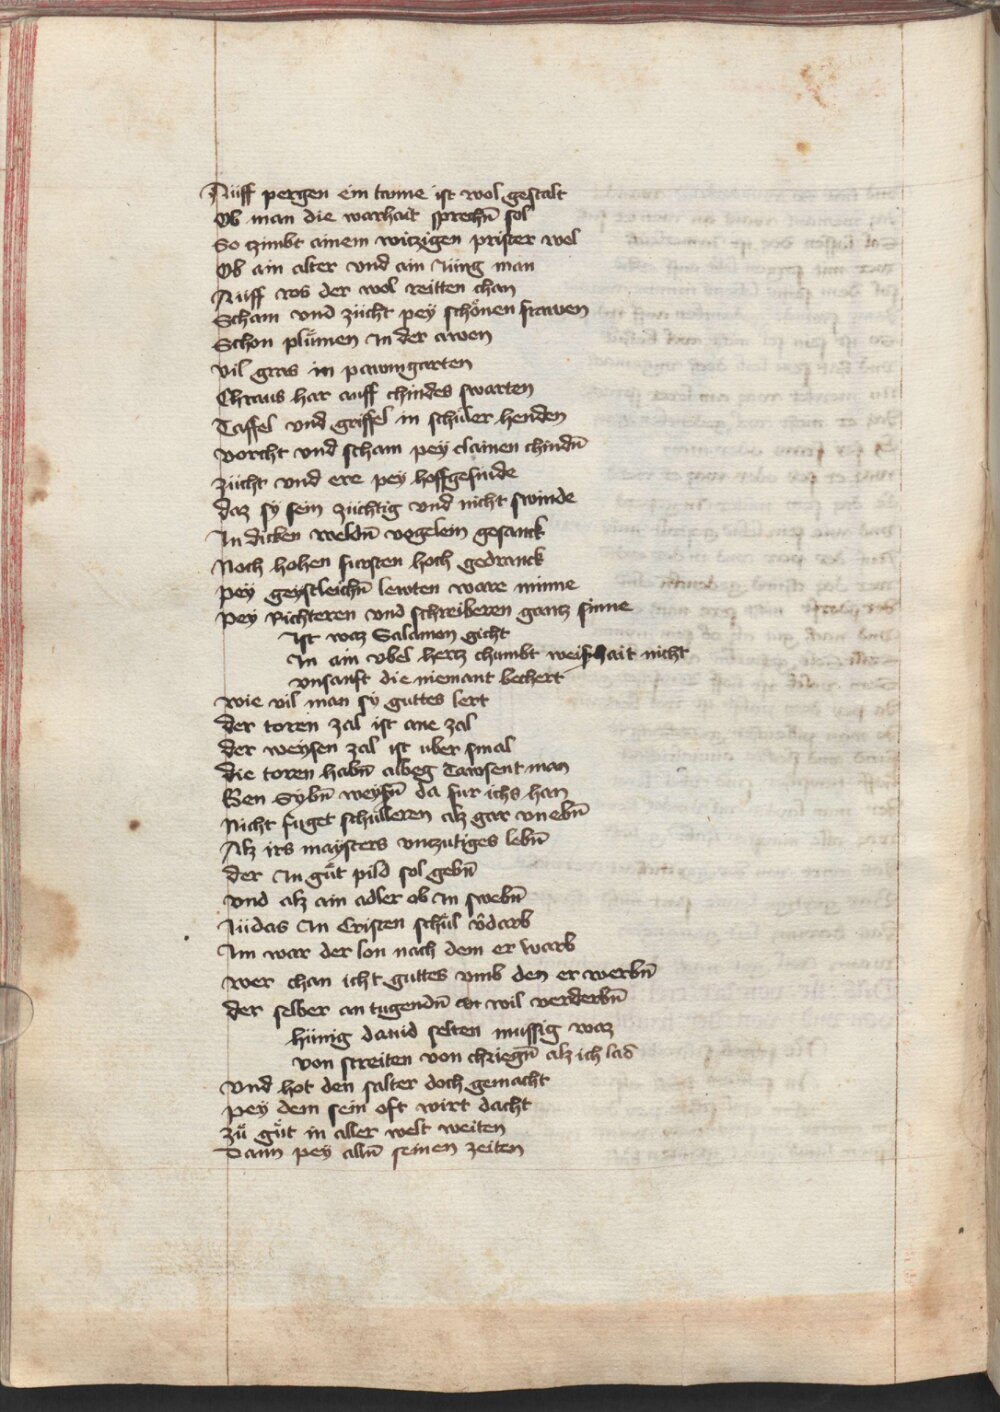 Auff pergen ein tanne ist wol gestalt
Ob man die warhait sprechn̄ sol
So czimbt ainem witzigen prister wol
Ob ain alter vnd ain Jüng man
Auff ros der wol reitten chan
Scham vnd zücht pey schönen frawen
Schon plümen In der awen
vil gras in pawmgarten
Chraus har auff chindes swarten
Taffel vnd griffel in schüler henden
vorcht vnd scham pey clainen chindn̄
zücht vnd ere pey hoffgesinde
daz sy sein züchtig vnd nicht swinde
In dicken weldn̄ vogelein gesanck
Noch hohen fursten hoch gedranck
pey geystleichn̄ lewten ware minne
pey Richteren vnd schreiberen gantz sinne
Ist waz Salamon gicht
In ain vbel hertz chambt weishait nicht
vnsanft die niemant bechert
wie vil man sy guttes lert
der toren zal ist ane zal
der weysen zal ist uber smal
die toren habn̄ albeg Tawsent man
Ben Sybn̄ weysn̄ da fur ichs han
Nicht füget schülleren alz gar vnebn̄
Alz irs maysters vnczutiges lebn̄
der In güt pild sol gebn̄
vnd alz ain adler ob In swebn̄
Judas In Cristen schül v̄darb
Im war der lon nach dem er warb
wer chan icht guttes vmb den er werbn̄
der selber an tugendn̄ wil verderbn̄
künig dauid selten mussig waz
von streiten von chriegn̄ alz ich las
vnd hot den salter doch gemacht
pey dem sein oft wirt dacht
zü güt in aller welt weiten
Dann pey alln̄ seinen zeiten